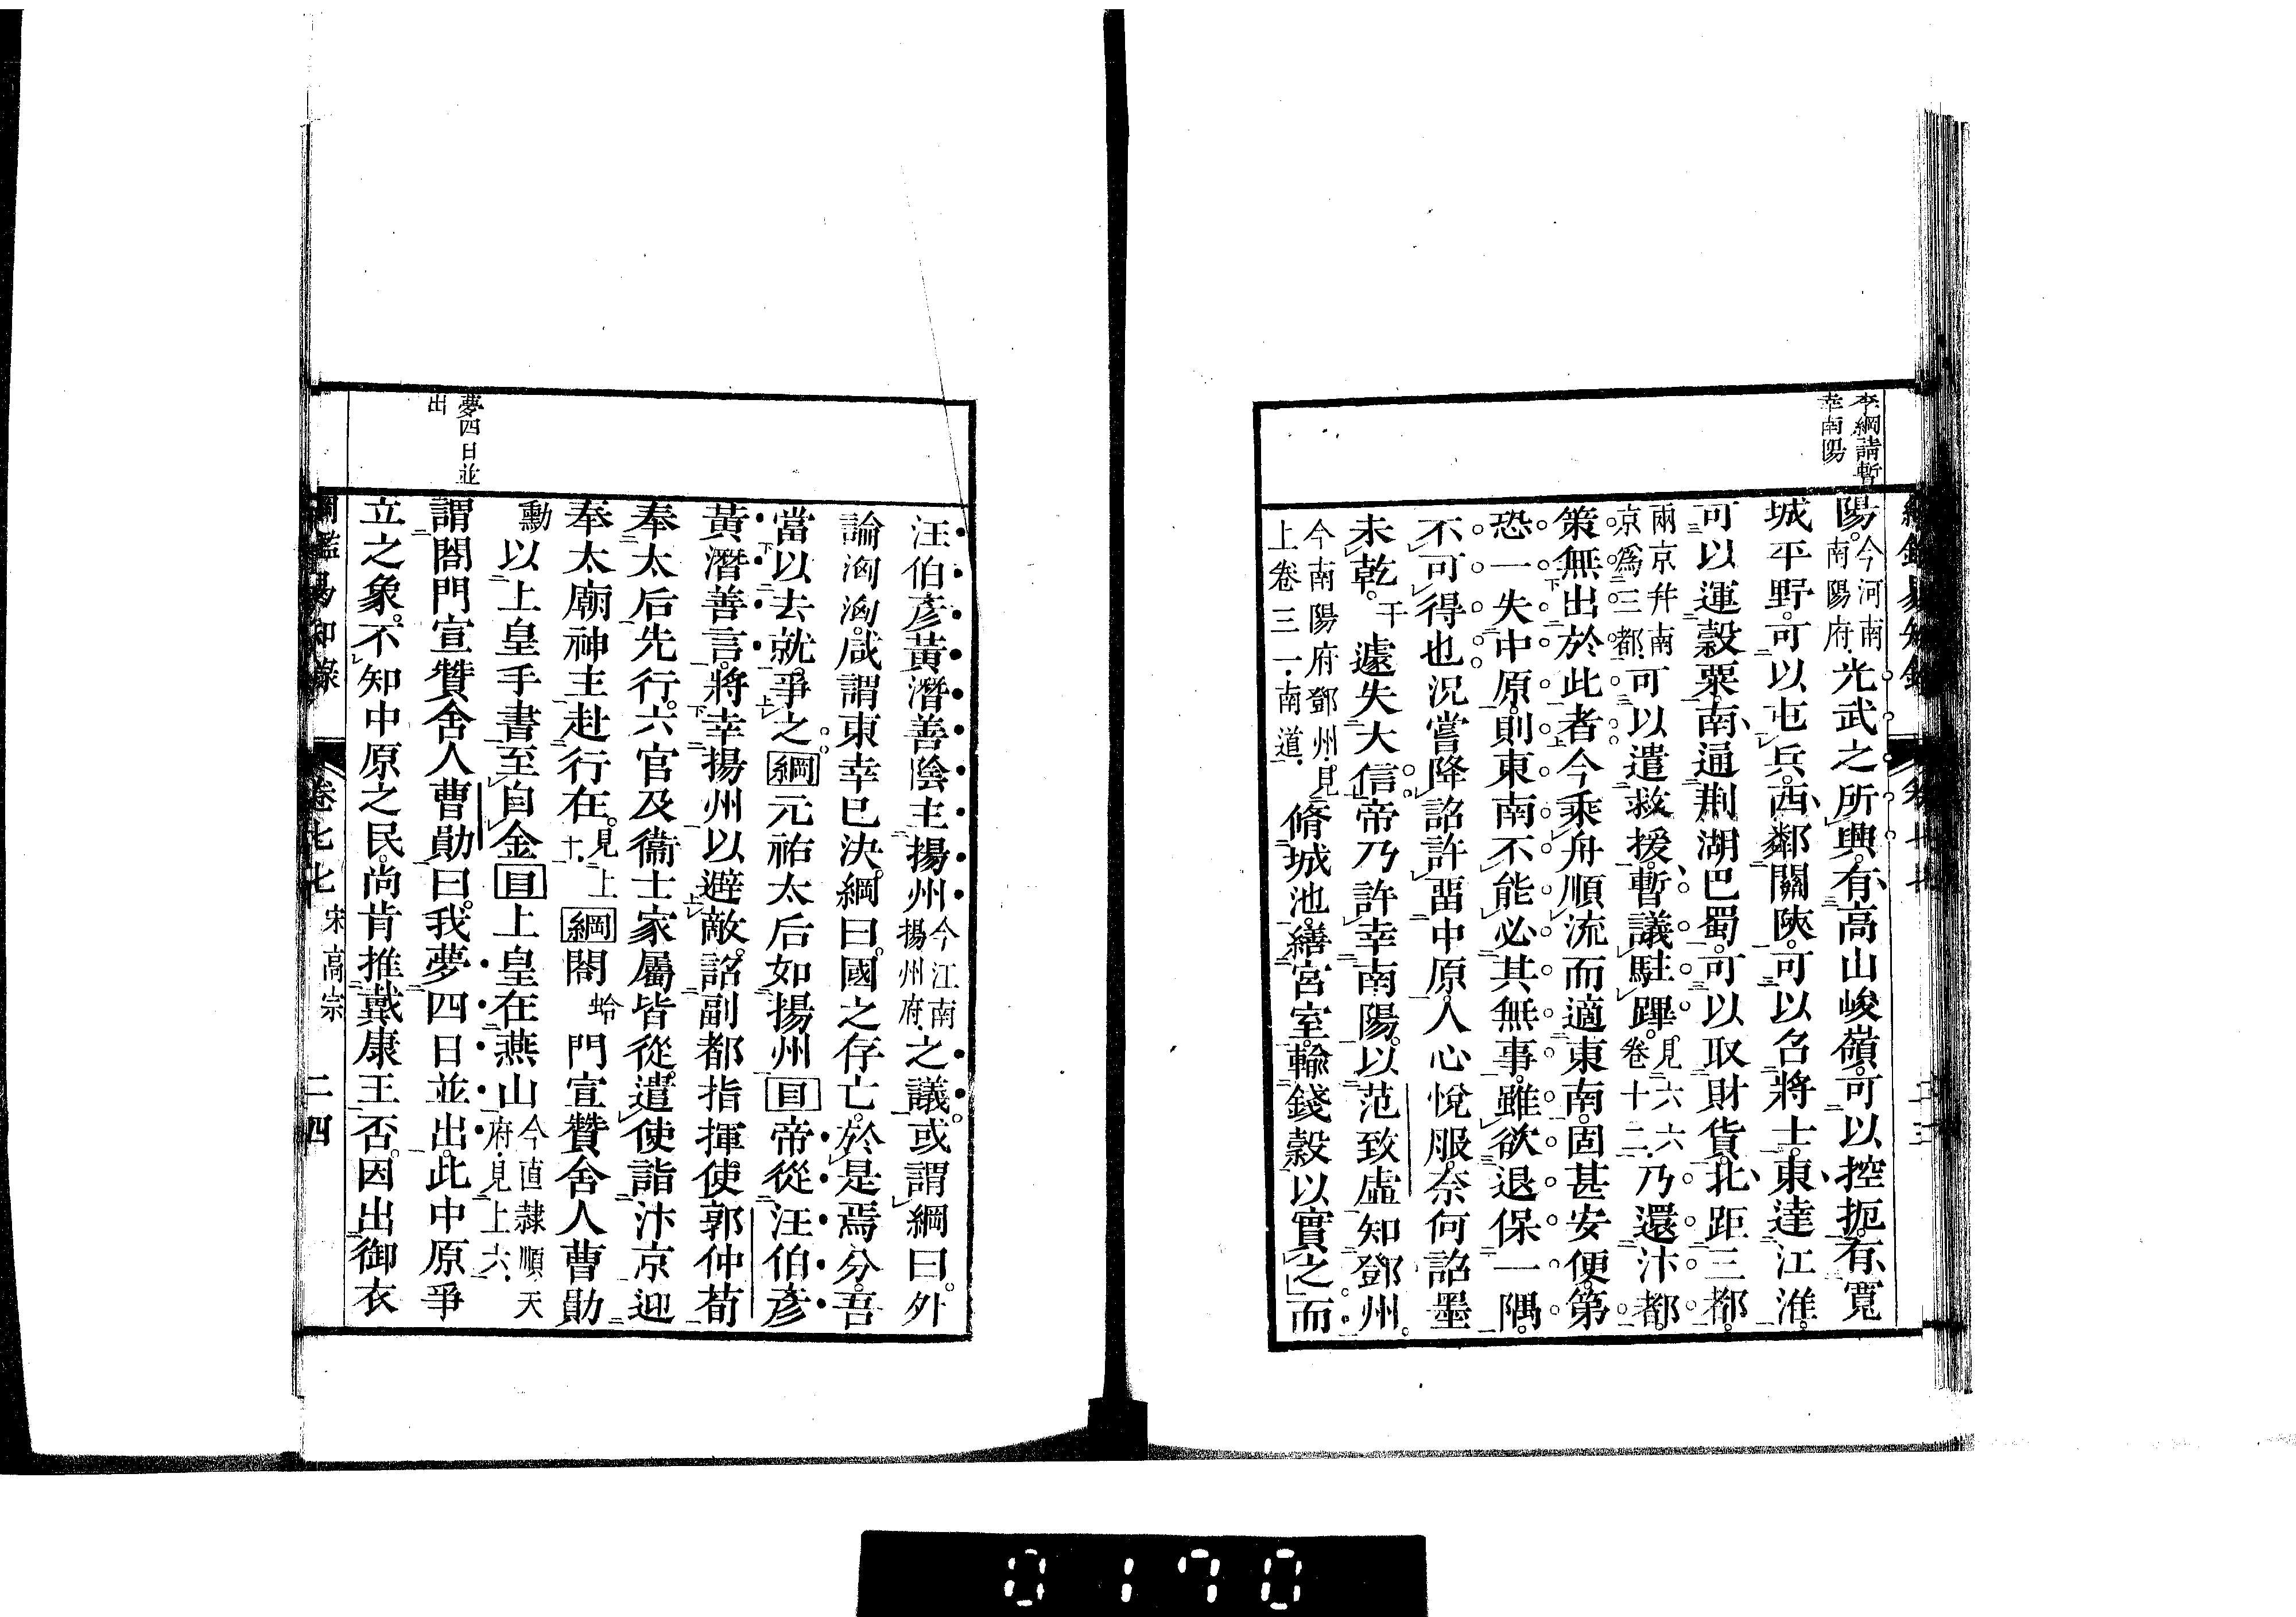 李綱請暫
幸南陽
陽今河南南陽府光武之所興有高山峻嶺可以控扼有寬
城平野可以屯兵西鄰關陝可以召將士東達江淮
可以運穀粟南通荆湖巴蜀可以取財貨北距三都
兩京幷南京爲三都可以遣救援暫議駐蹕見六六卷十二乃還汴都
策無出於此者今乘舟順流而適東南固甚安便第
恐一失中原則東南不能必其無事雖欲退保一隅
不可得也況嘗降詔許畱中原人心悅服奈何詔墨
未乾干遽失大信帝乃許幸南陽以范致虛知鄧州
今南陽府鄧州見上卷三一南道脩城池繕宮室輸錢穀以實之而
汪伯彥黃潛善陰主揚州今江南揚州府之議或謂綱曰外
論洶洶咸謂東幸已決綱曰國之存亡於是焉分吾
當以去就爭之綱元祐太后如揚州目帝從汪伯彥
黃潛善言將幸揚州以避敵詔副都指揮使郭仲荀
奉太后先行六官及衞士家屬皆從遣使詣汴京迎
奉太廟神主赴行在見上十綱閤蛤門宣贊舍人曹勛
勳以上皇手書至自金目上皇在燕山今直隸順天府見上六
謂閤門宣贊舍人曹勛曰我夢四日並出此中原爭
立之象不知中原之民尚肯推戴康王否因出御衣
夢四日並
出
綱鑑易知錄 卷七七 宋高宗 二四
0170